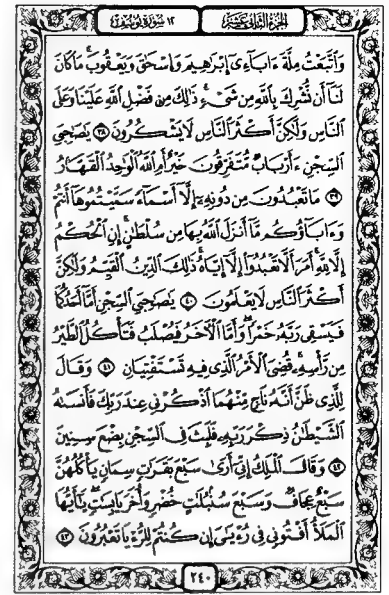 الجزء الثاني عشر
١٢ سورة يوسف
وَٱتَّبَعْتُ مِلَّةَ ءَابَآءِىٓ إِبْرَٰهِيمَ وَإِسْحَٰقَ وَيَعْقُوبَ ۚ مَا كَانَ
لَنَآ أَن نُّشْرِكَ بِٱللَّهِ مِن شَىْءٍ ۚ ذَٰلِكَ مِن فَضْلِ ٱللَّهِ عَلَيْنَا وَعَلَى
ٱلنَّاسِ وَلَٰكِنَّ أَكْثَرَ ٱلنَّاسِ لَا يَشْكُرُونَ ٣٨ يَٰصَىٰحِبَىِ
ٱلسِّجْنِ ءَأَرْبَابٌ مُّتَفَرِّقُونَ خَيْرٌ أَمِ ٱللَّهُ ٱلْوَٰحِدُ ٱلْقَهَّارُ
٣٩ مَا تَعْبُدُونَ مِن دُونِهِۦٓ إِلَّآ أَسْمَآءً سَمَّيْتُمُوهَآ أَنتُمْ
وَءَابَآؤُكُم مَّآ أَنزَلَ ٱللَّهُ بِهَا مِن سُلْطَٰنٍ ۚ إِنِ ٱلْحُكْمُ
إِلَّا لِلَّهِ ۚ أَمَرَ أَلَّا تَعْبُدُوٓا۟ إِلَّآ إِيَّاهُ ۚ ذَٰلِكَ ٱلدِّينُ ٱلْقَيِّمُ وَلَٰكِنَّ
أَكْثَرَ ٱلنَّاسِ لَا يَعْلَمُونَ ٤٠ يَٰصَىٰحِبَىِ ٱلسِّجْنِ أَمَّآ أَحَدُكُمَا
فَيَسْقِى رَبَّهُۥ خَمْرًا ۖ وَأَمَّا ٱلْءَاخَرُ فَيُصْلَبُ فَتَأْكُلُ ٱلطَّيْرُ
مِن رَّأْسِهِۦ ۚ قُضِىَ ٱلْأَمْرُ ٱلَّذِى فِيهِ تَسْتَفْتِيَانِ ٤١ وَقَالَ
لِلَّذِى ظَنَّ أَنَّهُۥ نَاجٍ مِّنْهُمَا ٱذْكُرْنِى عِندَ رَبِّكَ فَأَنسَىٰهُ
ٱلشَّيْطَٰنُ ذِكْرَ رَبِّهِۦ فَلَبِثَ فِى ٱلسِّجْنِ بِضْعَ سِنِينَ
٤٢ وَقَالَ ٱلْمَلِكُ إِنِّىٓ أَرَىٰ سَبْعَ بَقَرَٰتٍ سِمَانٍ يَأْكُلُهُنَّ
سَبْعٌ عِجَافٌ وَسَبْعَ سُنۢبُلَٰتٍ خُضْرٍ وَأُخَرَ يَابِسَٰتٍ ۖ يَٰٓأَيُّهَا
ٱلْمَلَأُ أَفْتُونِى فِى رُءْيَٰىَ إِن كُنتُمْ لِلرُّءْيَا تَعْبُرُونَ ٤٣
٢٤٠